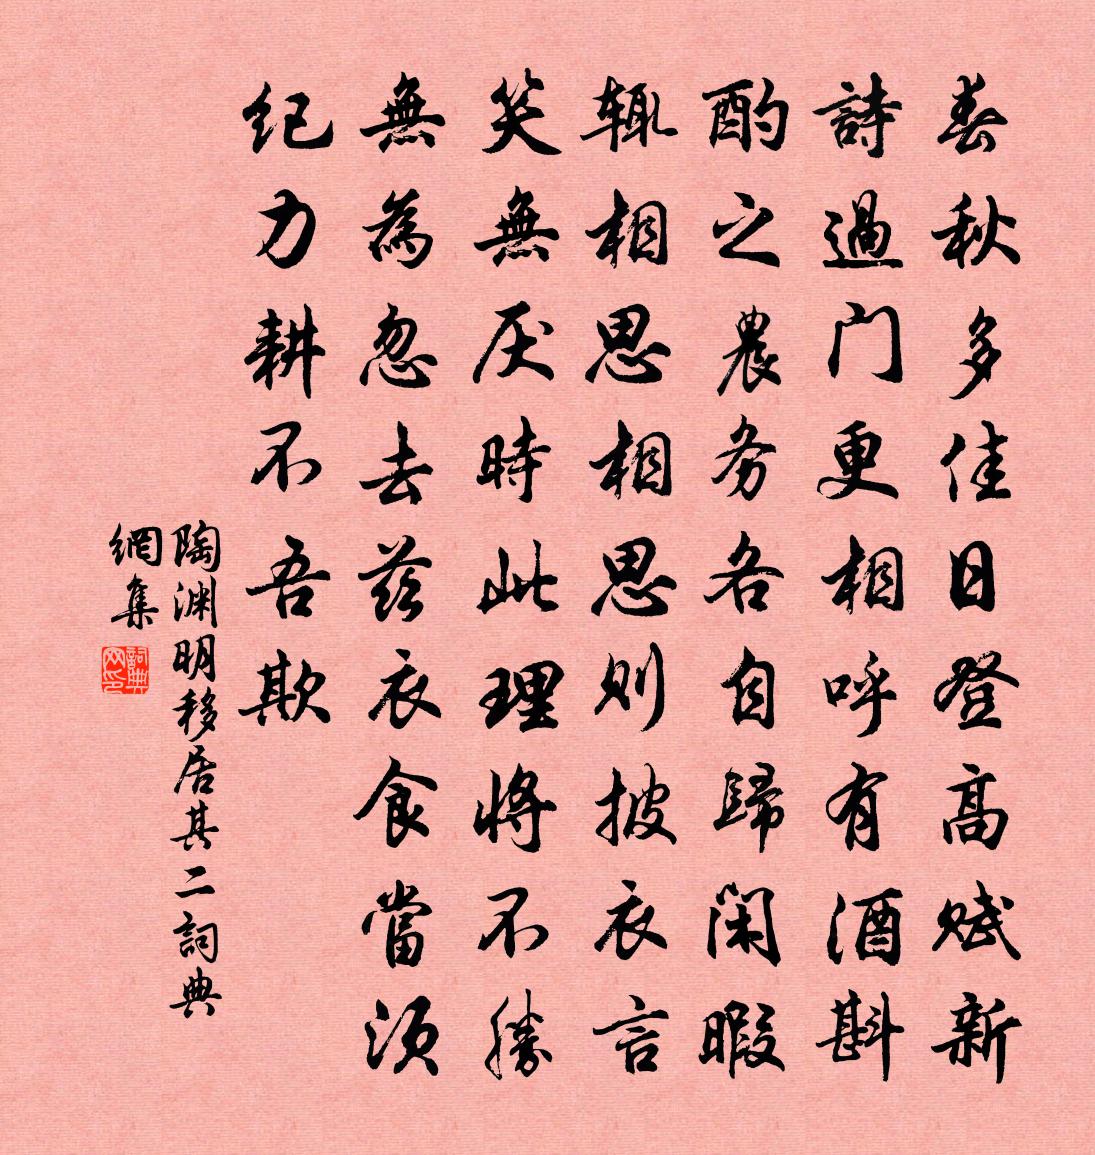 春秋多佳日登高赋新
詩過门更相呼有酒斟
酌之農务各自歸闲暇
辄相思相思则披衣言
笑無厌時此理将不勝
無為忽去兹衣食當须
纪力耕不吾欺
陶渊明移居其二詞典
網集
詞典
网印